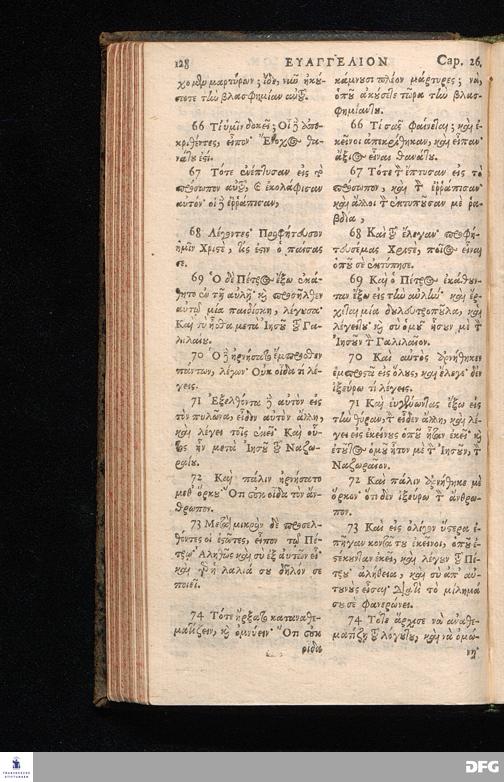 128 ΕΥΑΓΓΕΛΙΟΝ Cap. 26.
χομεν μαρτύρων; ἴδε, νῦν ἠκύ-
σατε τὴν βλασφημίαν αὐτῦ.
66 Τί ὑμῖν δοκεῖ; Οἱ δὲ ἀπο-
κριθέντες, εἶπον· Ἔνοχος θα-
νάτυ ἐςί.
67 Τότε ἐνέπτυσαν εἰς τὸ
πρόσωπον αὐτῦ, καὶ ἐκολάφισαν
αὐτόν· οἱ δὲ ἐῤῥάπισαν,
68 Λέγοντες· Προφήτευσον
ἡμῖν Χριςὲ, τίς ἐςιν ὁ παίσας
σε.
69 Ὁ δὲ Πέτρος ἔξω ἐκά-
θητο ἐν τῇ αὐλῇ· καὶ προσῆλθεν
αὐτῷ μία παιδίσκη, λέγυσα·
Καὶ σὺ ἦσθα μετὰ Ἰησῦ τῦ Γα-
λιλαίυ.
70 Ὁ δὲ ἠρνήσατο ἔμπροσθεν
πάντων, λέγων· Οὐκ οἶδα τί λέ-
γεις.
71 Ἐξελθόντα δὲ αὐτὸν εἰς
τὸν πυλῶνα, εἶδεν αὐτὸν ἄλλη,
καὶ λέγει τοῖς ἐκεῖ· Καὶ οὗ-
τος ἦν μετὰ Ἰησῦ τῦ Ναζω-
ραίυ.
72 Καὶ πάλιν ἠρνήσατο
μεθ' ὅρκυ· Ὅτι ὐκ οἶδα τὸν ἄν-
θρωπον.
73 Μετὰ μικρὸν δὲ προσελ-
θόντες οἱ ἑςῶτες, εἶπον τῷ Πέ-
τρῳ· Ἀληθῶς καὶ σὺ ἐξ αὐτῶν εἶ·
καὶ γὰρ ἡ λαλιά συ δῆλόν σε
ποιεῖ.
74 Τότε ἤρξατο καταναθε-
ματίζειν, καὶ ὀμνύειν· Ὅτι ὐκ
οἶδα
κάμνυσι πλέον μάρτυρες; νὰ,
ὁπῦ ἀκύσετε τῶρα τὴν βλασ-
φημίαντυ.
66 Τί σᾶς φαίνεται; καὶ ἐ-
κεῖνοι ἀπεκρίθηκαν, καὶ εἶπαν·
ἄξιος εἶναι θανάτυ.
67 Τότε τὸν ἔπτυσαν εἰς τὸ
πρόσωπον, καὶ τὸν ἐῤῥάπισαν·
καὶ ἄλλοι τὸν ἐκτυπῦσαν μὲ ῥα-
βδία,
68 Καὶ τῦ ἔλεγαν· προφή-
τευσέμας Χριςὲ, ποῖος εἶναι
ὁπῦ σὲ ἐκτύπησε.
69 Καὶ ὁ Πέτρος ἐκάθυν-
ταν ἔξω εἰς τὴν αὐλὴν· καὶ ἔρ-
χεται μία δυλεύτροπυλα, καὶ
λέγειτυ· καὶ σὺ ὁμῦ ἤσυν μὲ τὸν
Ἰησῦν τὸν Γαλιλαῖον.
70 Καὶ αὐτὸς ἀρνήθηκεν
ἐμπροςὰ εἰς ὅλυς, καὶ ἔλεγε· δὲν
ἐξεύρω τί λέγεις.
71 Καὶ εὐγαίνωντας ἔξω εἰς
τὴν θύραν, τὸν εἶδεν ἄλλη, καὶ λέ-
γει εἰς ἐκείνυς ὁπῦ ἦταν ἐκεῖ· καὶ
ἐτῦτος ὁμῦ ἦτον μὲ τὸν Ἰησῦν, τὸν
Ναζωραῖον.
72 Καὶ πάλιν ἀρνήθηκε μὲ
ὅρκον· ὅτι δὲν ἐξεύρω τὸν ἄνθρω-
πον.
73 Καὶ εἰς ὀλίγον ὕςερα ἐ-
πῆγαν κοντάτυ ἐκεῖνοι, ὁπῦ ἐ-
ςέκυνταν ἐκεῖ, καὶ λέγυν τῦ Πέ-
τρυ· ἀλήθεια, καὶ σὺ ἀπ' αὐ-
τυνὺς εἶσαι· διατὶ τὸ μίλημά
συ σε φανερώνει.
74 Τότε ἄρχισε νὰ ἀναθε-
ματίζῃ τῦ λόγυτυ, καὶ νὰ ὀμώ-
νῃ·
DFG